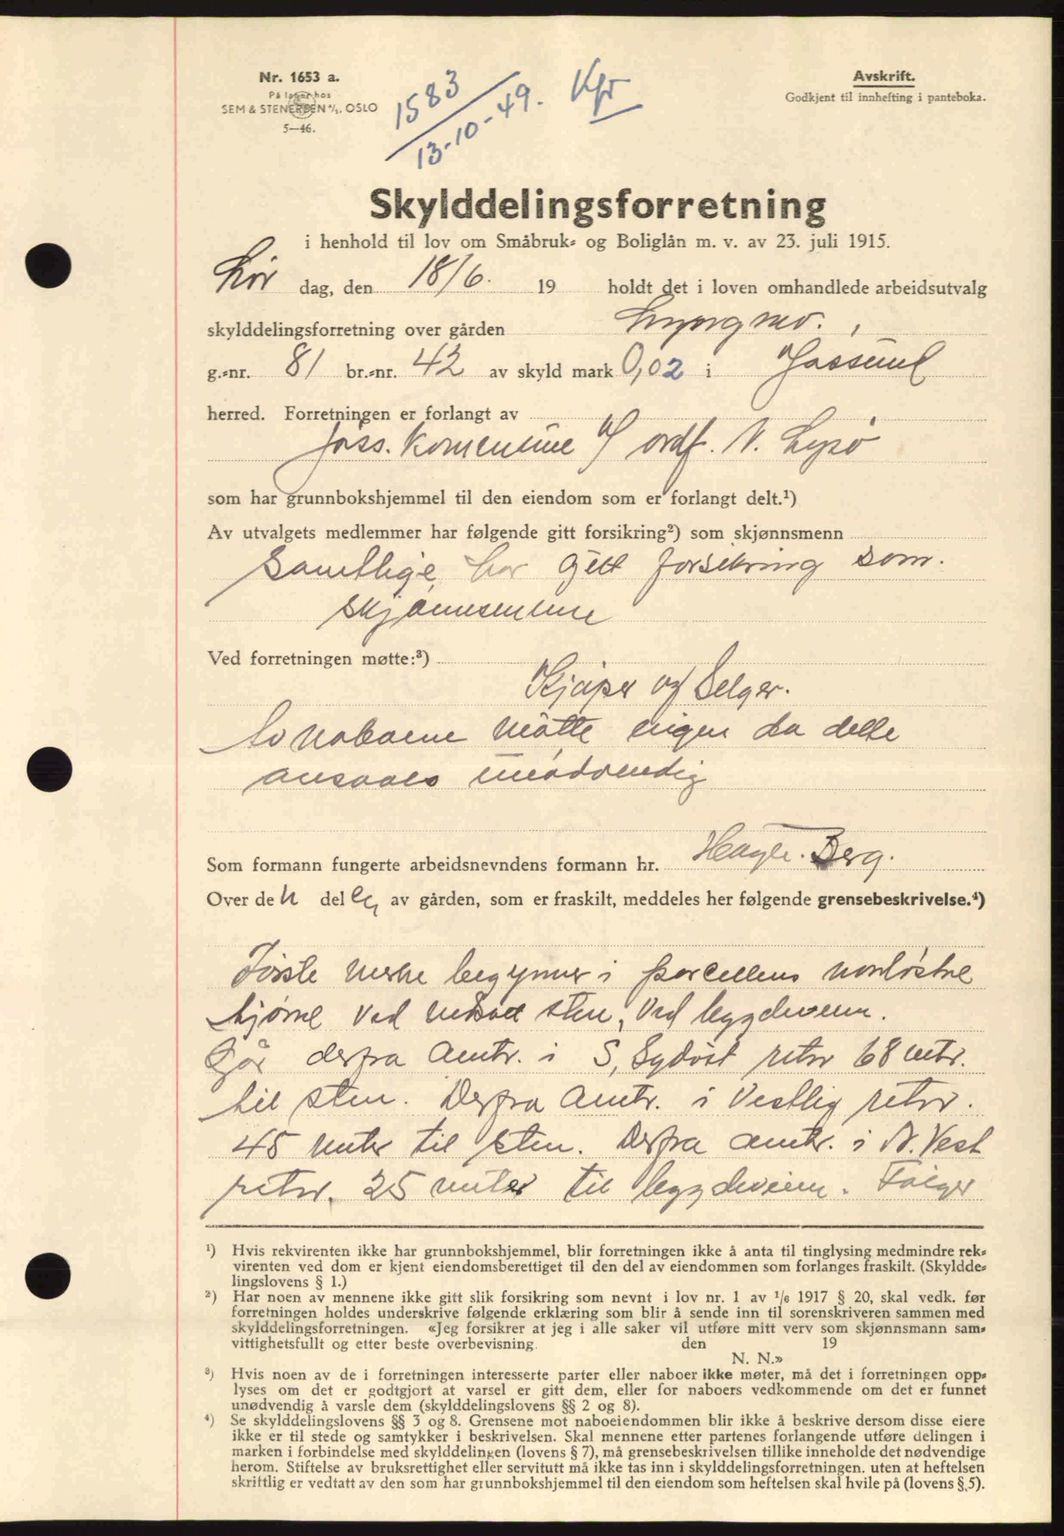 Nr. 1653 a.
På lager hos
SEM & STENERSEN A/S, OSLO
5—46.
1583
13-10-49.
Avskrift.
Godkjent til innhefting i panteboka.
Skylddelingsforretning
i henhold til lov om Småbruk- og Boliglån m. v. av 23. juli 1915.
Lør dag, den 18/6. 19 holdt det i loven omhandlede arbeidsutvalg
skylddelingsforretning over gården
g.-nr. 81 br.-nr. 42 av skyld mark 0,02 i Jøssund
herred. Forretningen er forlangt av
Jøss. Kommune v/ ordf. N. Lysø
som har grunnbokshjemmel til den eiendom som er forlangt delt.¹)
Av utvalgets medlemmer har følgende gitt forsikring²) som skjønnsmenn
Samtlige har gitt forsikring som.
skjønnsmenn
Ved forretningen møtte:³)
Kjøper og Selger.
Av naboerne møtte ingen da dette
ansaaes unødvendig
Som formann fungerte arbeidsnevndens formann hr. Hagb. Berg.
Over den del en av gården, som er fraskilt, meddeles her følgende grensebeskrivelse.⁴)
Første merke begynner i parcellens nordøstre
hjørne ved nedsat sten, ved bygdeveien.
Går derfra omtr. i S, Sydøst retn 68 mtr.
til sten. Derfra omtr. i Vestlig retn.
45 meter til sten. Derfra omtr. i N. Vest
retn. 25 meter til bygdeveien. Følger
¹) Hvis rekvirenten ikke har grunnbokshjemmel, blir forretningen ikke å anta til tinglysing medmindre rek-
virenten ved dom er kjent eiendomsberettiget til den del av eiendommen som forlanges fraskilt. (Skyldde-
lingslovens § 1.)
²) Har noen av mennene ikke gitt slik forsikring som nevnt i lov nr. 1 av 1/6 1917 § 20, skal vedk. før
forretningen holdes underskrive følgende erklæring som blir å sende inn til sorenskriveren sammen med
skylddelingsforretningen. «Jeg forsikrer at jeg i alle saker vil utføre mitt verv som skjønnsmann sam-
vittighetsfullt og etter beste overbevisning. den 19
N. N.»
³) Hvis noen av de i forretningen interesserte parter eller naboer ikke møter, må det i forretningen opp-
lyses om det er godtgjort at varsel er gitt dem, eller for naboers vedkommende om det er funnet
unødvendig å varsle dem (skylddelingslovens §§ 2 og 8).
⁴) Se skylddelingslovens §§ 3 og 8. Grensene mot naboeiendommen blir ikke å beskrive dersom disse eiere
ikke er til stede og samtykker i beskrivelsen. Skal mennene etter partenes forlangende utføre delingen i
marken i forbindelse med skylddelingen (lovens § 7), må grensebeskrivelsen tillike inneholde det nødvendige
herom. Stiftelse av bruksrettighet eller servitutt må ikke tas inn i skylddelingsforretningen, uten at heftelsen
skriftlig er vedtatt av den som har grunnbokshjemmel til den eiendom som heftelsen skal hvile på (lovens § 5).